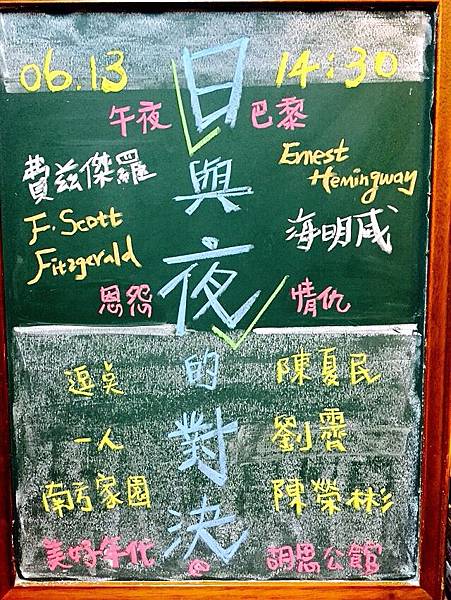 06.13 14:30
日與夜的對決
午夜 巴黎
費茲傑羅
F. Scott
Fitzgerald
Ernest
Hemingway
海明威
恩怨 情仇
逗点 陳夏民
一人 劉霽
南方家園 陳榮彬
美好年代 @ 胡思公館